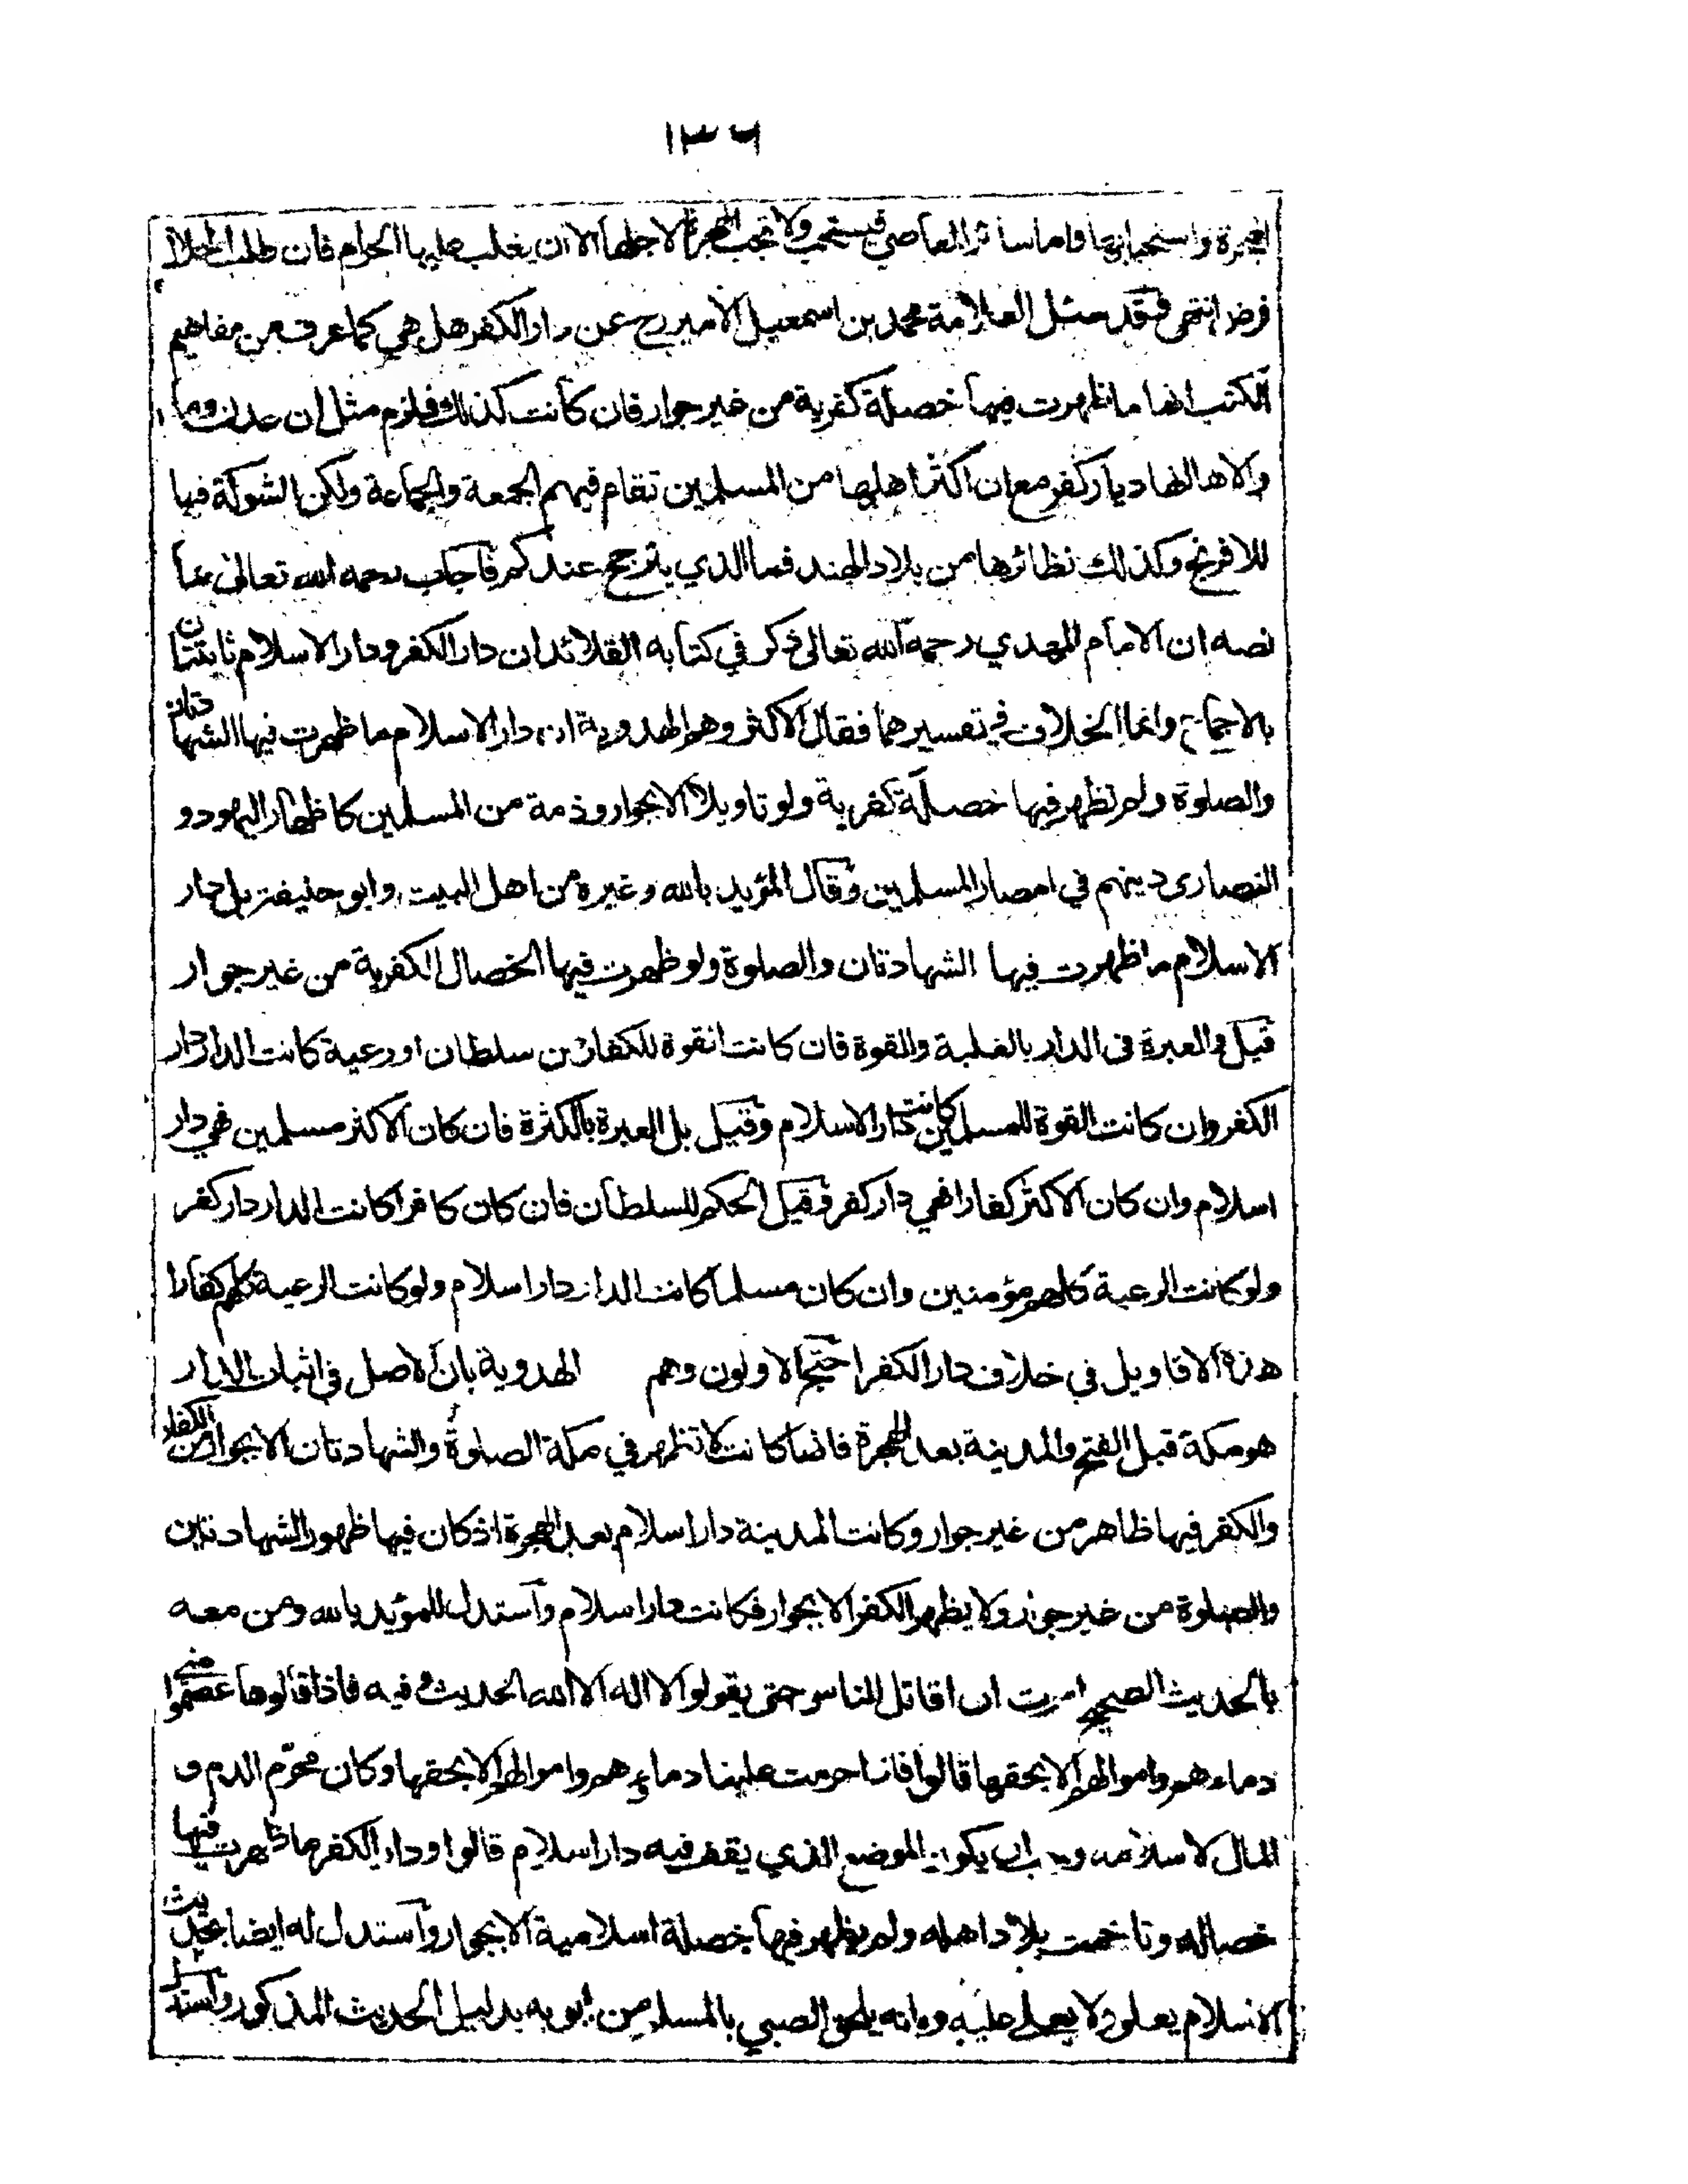 ١٣٦
الهجرة واستحبابها فاما سائر المعاصي فيستحب ولا تجب الهجرة لاجلها الا ان يغلب عليها الحرام فان طلب الحلال
فرض انتهى وقد سئل العلامة محمد بن اسمعيل الامير رح عن دار الكفر هل هي كما عرف من مفاهيم
الكتب انها ما ظهرت فيها خصلة كفرية من غير جوار فان كانت كذلك فلزم مثل ان عدن وما
والاها انها ديار كفر مع ان اكثر اهلها من المسلمين تقام فيهم الجمعة والجماعة ولكن الشوكة فيها
للافرنج وكذلك نظائرها من بلاد الهند فما الذي يترجح عندكم فاجاب رحمه الله تعالى بما
نصه ان الامام المهدي رحمه الله تعالى ذكر في كتابه القلائد ان دار الكفر ودار الاسلام ثابتتان
بالاجماع وانما الخلاف في تفسيرهما فقال الاكثر وهم الهدوية ان دار الاسلام ما ظهرت فيها الشهادتان
والصلوة ولم تظهر فيها خصلة كفرية ولو تاويلا الا بجوار وذمة من المسلمين كاظهار اليهود و
النصارى دينهم في امصار المسلمين وقال المؤيد بالله وغيره من اهل البيت وابو حنيفة بل دار
الاسلام ما ظهرت فيها الشهادتان والصلوة ولو ظهرت فيها الخصال الكفرية من غير جوار
قيل والعبرة في الدار بالغلبة والقوة فان كانت القوة للكفار من سلطان او رعية كانت الدار دار
الكفر وان كانت القوة للمسلمين كانت دار الاسلام وقيل بل العبرة بالكثرة فان كان الاكثر مسلمين فهي دار
اسلام وان كان الاكثر كفارا فهي دار كفر وقيل الحكم للسلطان فان كان كافرا كانت الدار دار كفر
ولو كانت الرعية كلهم مؤمنين وان كان مسلما كانت الدار دار اسلام ولو كانت الرعية كلهم كفارا
هذه الاقاويل في خلاف دار الكفر احتج الاولون وهم الهدوية بان الاصل في اثبات الدار
هو مكة قبل الفتح والمدينة بعد الهجرة فانها كانت لا تظهر في مكة الصلوة والشهادتان الا بجوار من الكفار
والكفر فيها ظاهر من غير جوار وكانت المدينة دار اسلام بعد الهجرة اذ كان فيها ظهور الشهادتين
والصلوة من غير جوار ولا يظهر الكفر الا بجوار فكانت دار اسلام واستدل للمؤيد بالله ومن معه
بالحديث الصحيح امرت ان اقاتل الناس حتى يقولوا لا اله الا الله الحديث وفيه فاذا قالوها عصموا مني
دماءهم واموالهم الا بحقها قالوا فانها حرمت علينا دماؤهم واموالهم الا بحقها وكان محرم الدم و
المال لاسلامه وجب ان يكون الموضع الذي يقف فيه دار اسلام قالوا ودار الكفر ما ظهرت فيها
خصاله وتاخمت بلاد اهله ولم يظهر فيها خصلة اسلامية الا بجوار واستدل له ايضا بحديث
الاسلام يعلو ولا يعلى عليه وبانه يلحق الصبي بالمسلم من ابويه بدليل الحديث المذكور واستدل